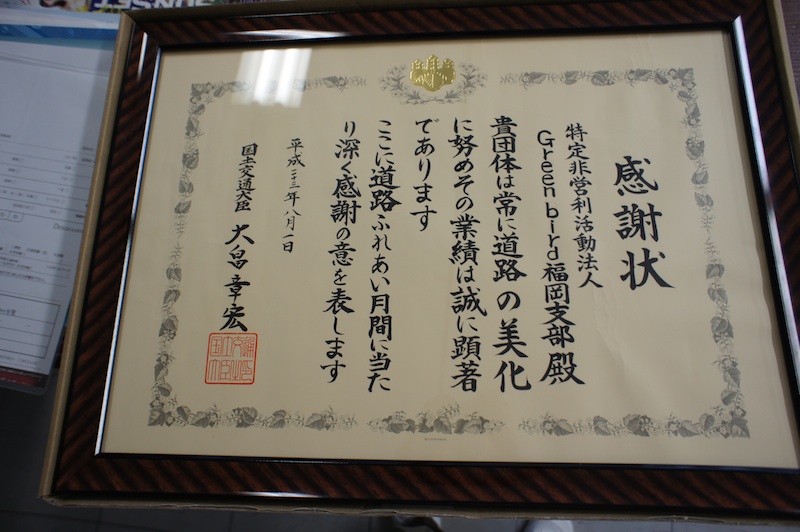 感謝状
特定非営利活動法人
Greenbird福岡支部 殿
貴団体は常に道路の美化
に努めその業績は誠に顕著
であります
ここに道路ふれあい月間に当た
り深く感謝の意を表します
平成二十三年八月一日
国土交通大臣 大畠章宏